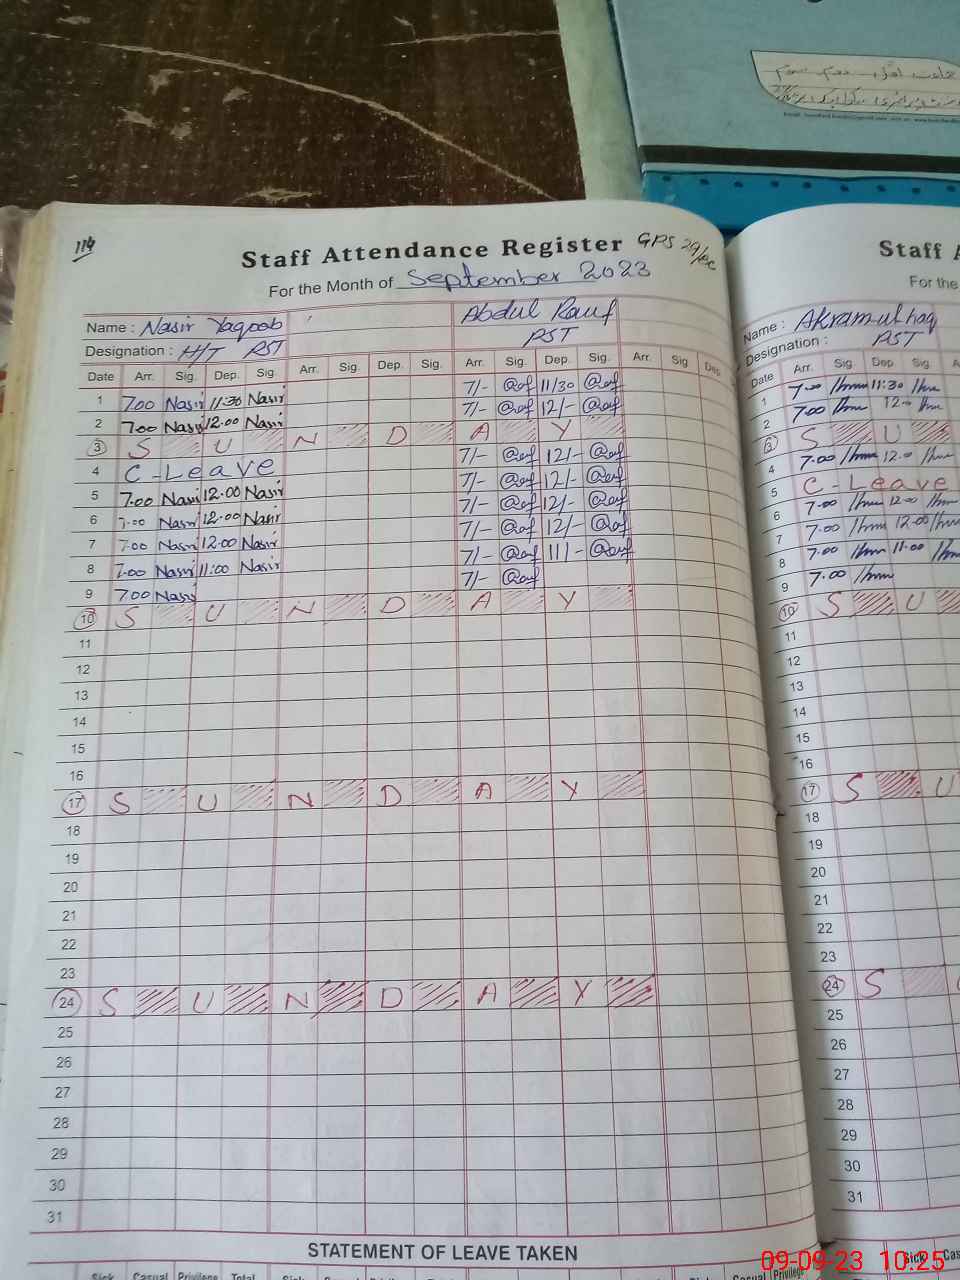 114
Staff Attendance Register GPS 29/EC
For the Month of September 2023
Name : Nasir Yaqoob Abdul Rauf
Designation : H/T PST PST
Date Arr. Sig. Dep. Sig. Arr. Sig. Dep. Sig. Arr. Sig. Dep. Sig. Arr. Sig Dep
1 7.00 Nasir 11:30 Nasir 7/- 11/30
2 7.00 Nasir 12.00 Nasir 7/- 12/-
3 S U N D A Y
4 C-Leave 7/- 12/-
5 7.00 Nasir 12.00 Nasir 7/- 12/-
6 7.00 Nasir 12.00 Nasir 7/- 12/-
7 7.00 Nasir 12.00 Nasir 7/- 12/-
8 7.00 Nasir 11:00 Nasir 7/- 11/-
9 7.00 Nasir 7/-
10 S U N D A Y
11
12
13
14
15
16
17 S U N D A Y
18
19
20
21
22
23
24 S U N D A Y
25
26
27
28
29
30
31
STATEMENT OF LEAVE TAKEN
Sick Casual Privilege Total Sick
Staff A
For the
Name : Akram-ul-haq
Designation : PST
Date Arr. Sig. Dep Sig. A
1 7.00 11:30
2 7.00 12.00
3 S U
4 7.00 12.00
5 C-Leave
6 7.00 12.00
7 7.00 12.00
8 7.00 11.00
9 7.00
10 S U
11
12
13
14
15
16
17 S U
18
19
20
21
22
23
24 S
25
26
27
28
29
30
31
Sick Cas
09-09-23 10:25